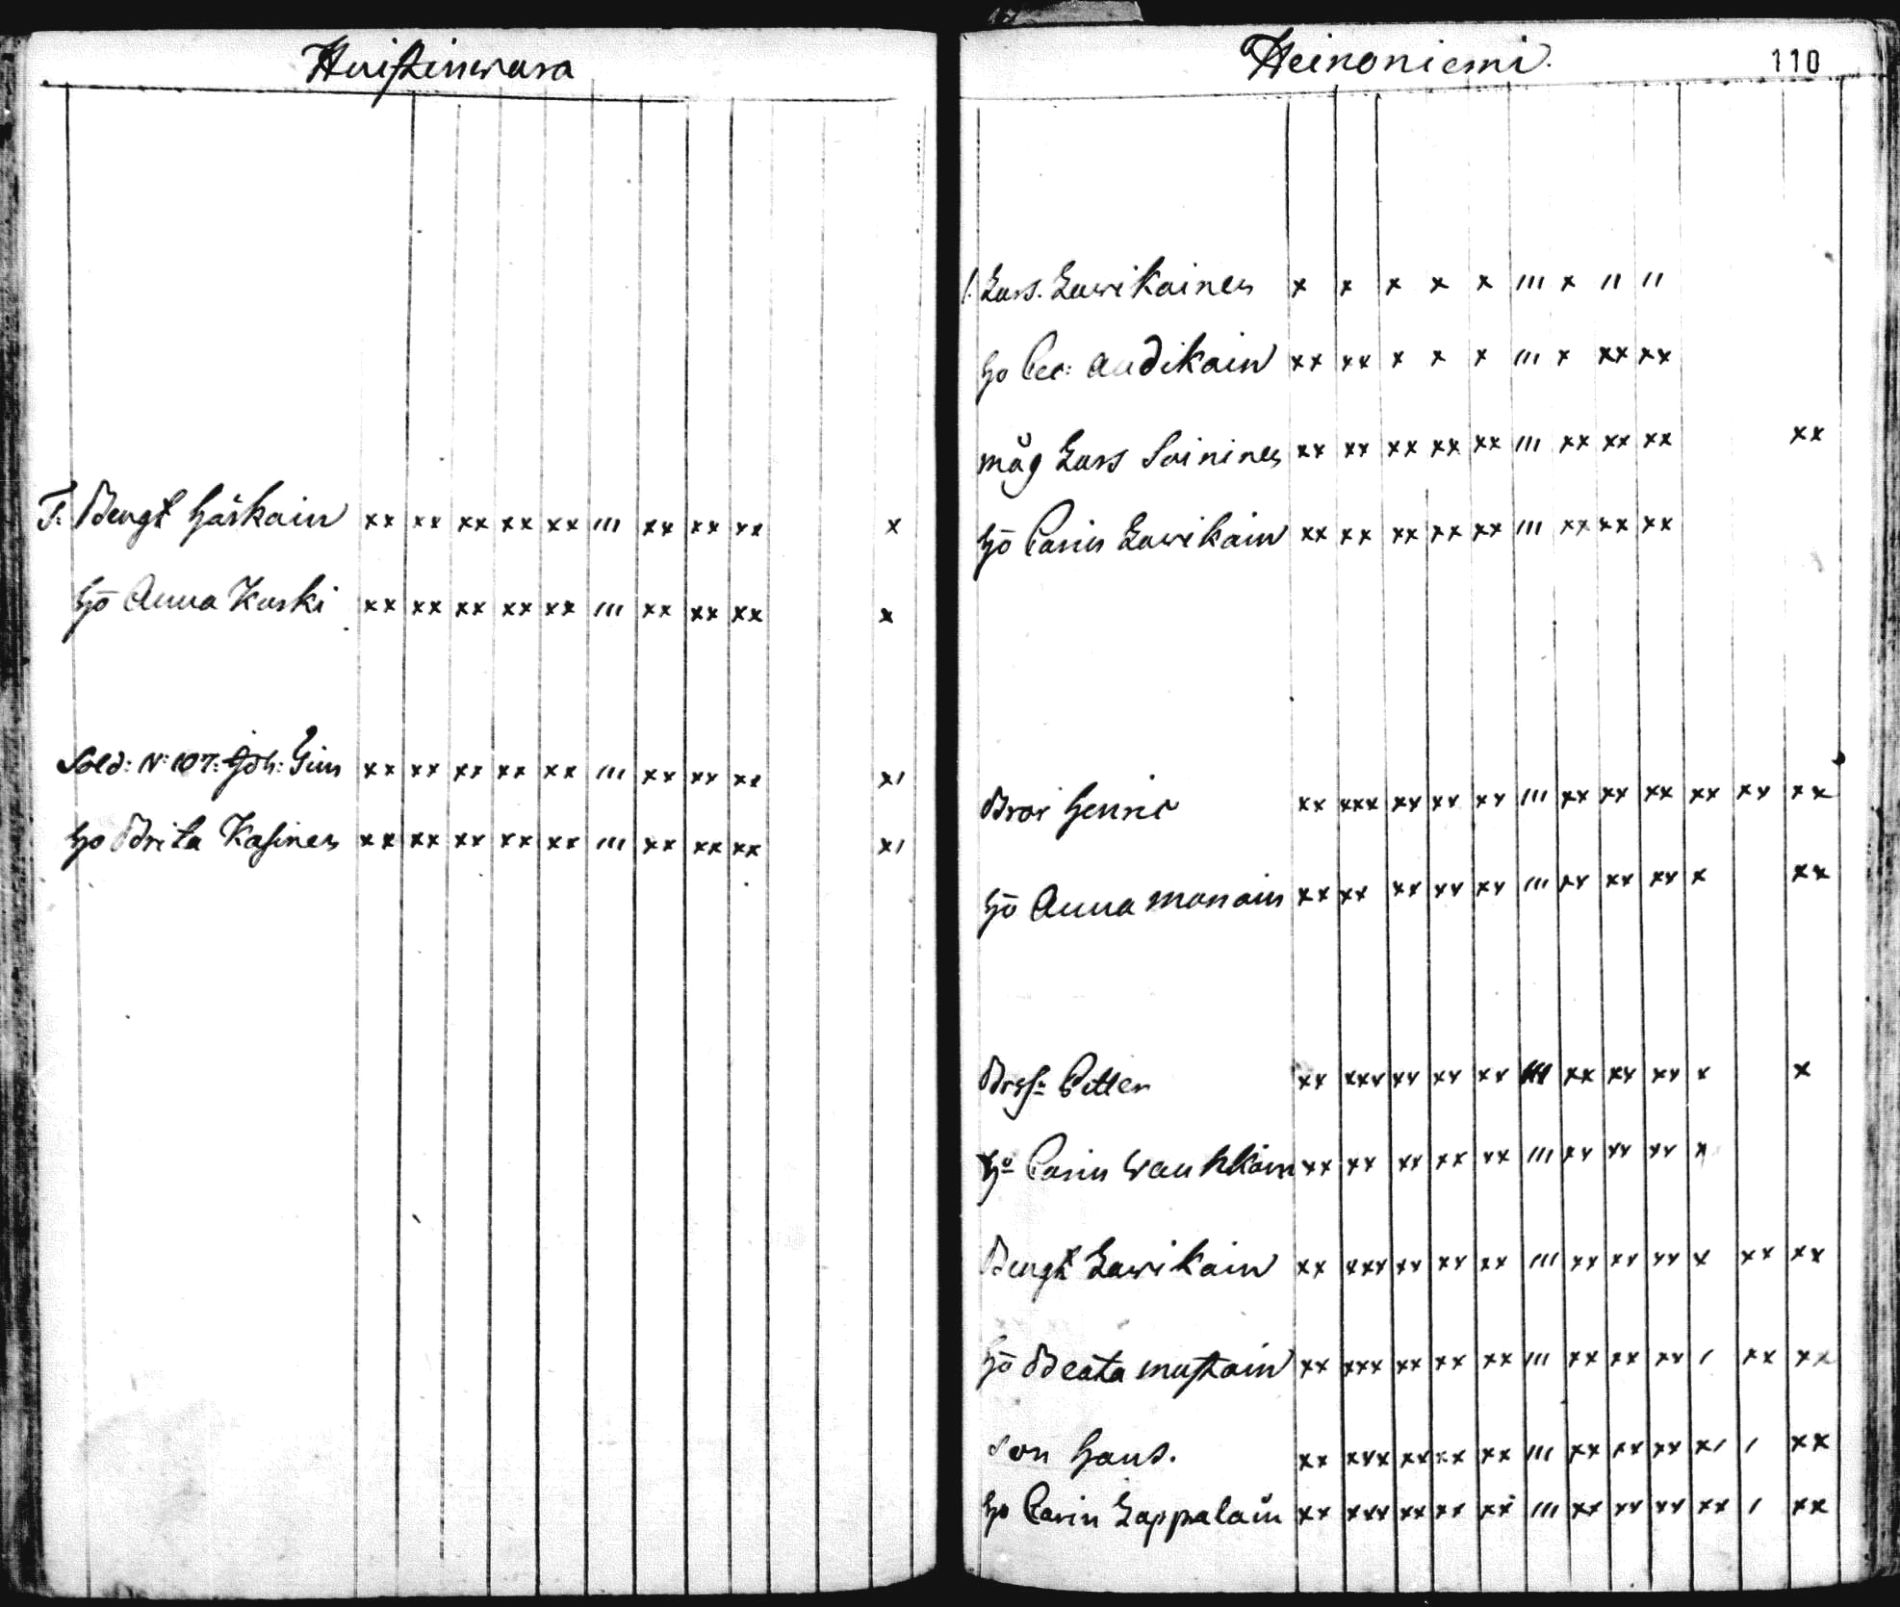 Huistinwara
T. Bengt Häskain xx xx xx xx xx ııı xx xx xx x
Hö Anna Koski xx xx xx xx xx ııı xx xx xx x
Sold: N: 107: Joh: Gim xx xx xx xx xx ııı xx xx xx xı
Ho Brita Kasinen xx xx xx xx xx ııı xx xx xx xı
Heinoniemi. 110
Lars. Lawikainen x x x x x ııı x ıı ıı
Ho Cec: Audikain xx xx x x x ııı x xx xx
måg Lars Soininen xx xx xx xx xx ııı xx xx xx xx
Hö Carin Lawikain xx xx xx xx xx ııı xx xx xx
Bror Henric xx xxx xx xx xx ııı xx xx xx xx xx xx
Hö Anna monain xx xx xx xx xx ııı xx xx xx x xx
Brss: Petter xx xxx xx xx xx xx xx xx x x
Hö Carin Wauhkoin xx xx xx xx xx ııı xx xx xx x
Bengt Lawikain xx xxx xx xx xx ııı xx xx xx x xx xx
Hö Beata mustoin xx xxx xx xx xx ııı xx xx xx ı xx xx
Son Hans. xx xxx xx xx xx ııı xx xx xx xı ı xx
Ho Carin Lappalain xx xxx xx xx xx ııı xx xx xx xx ı xx